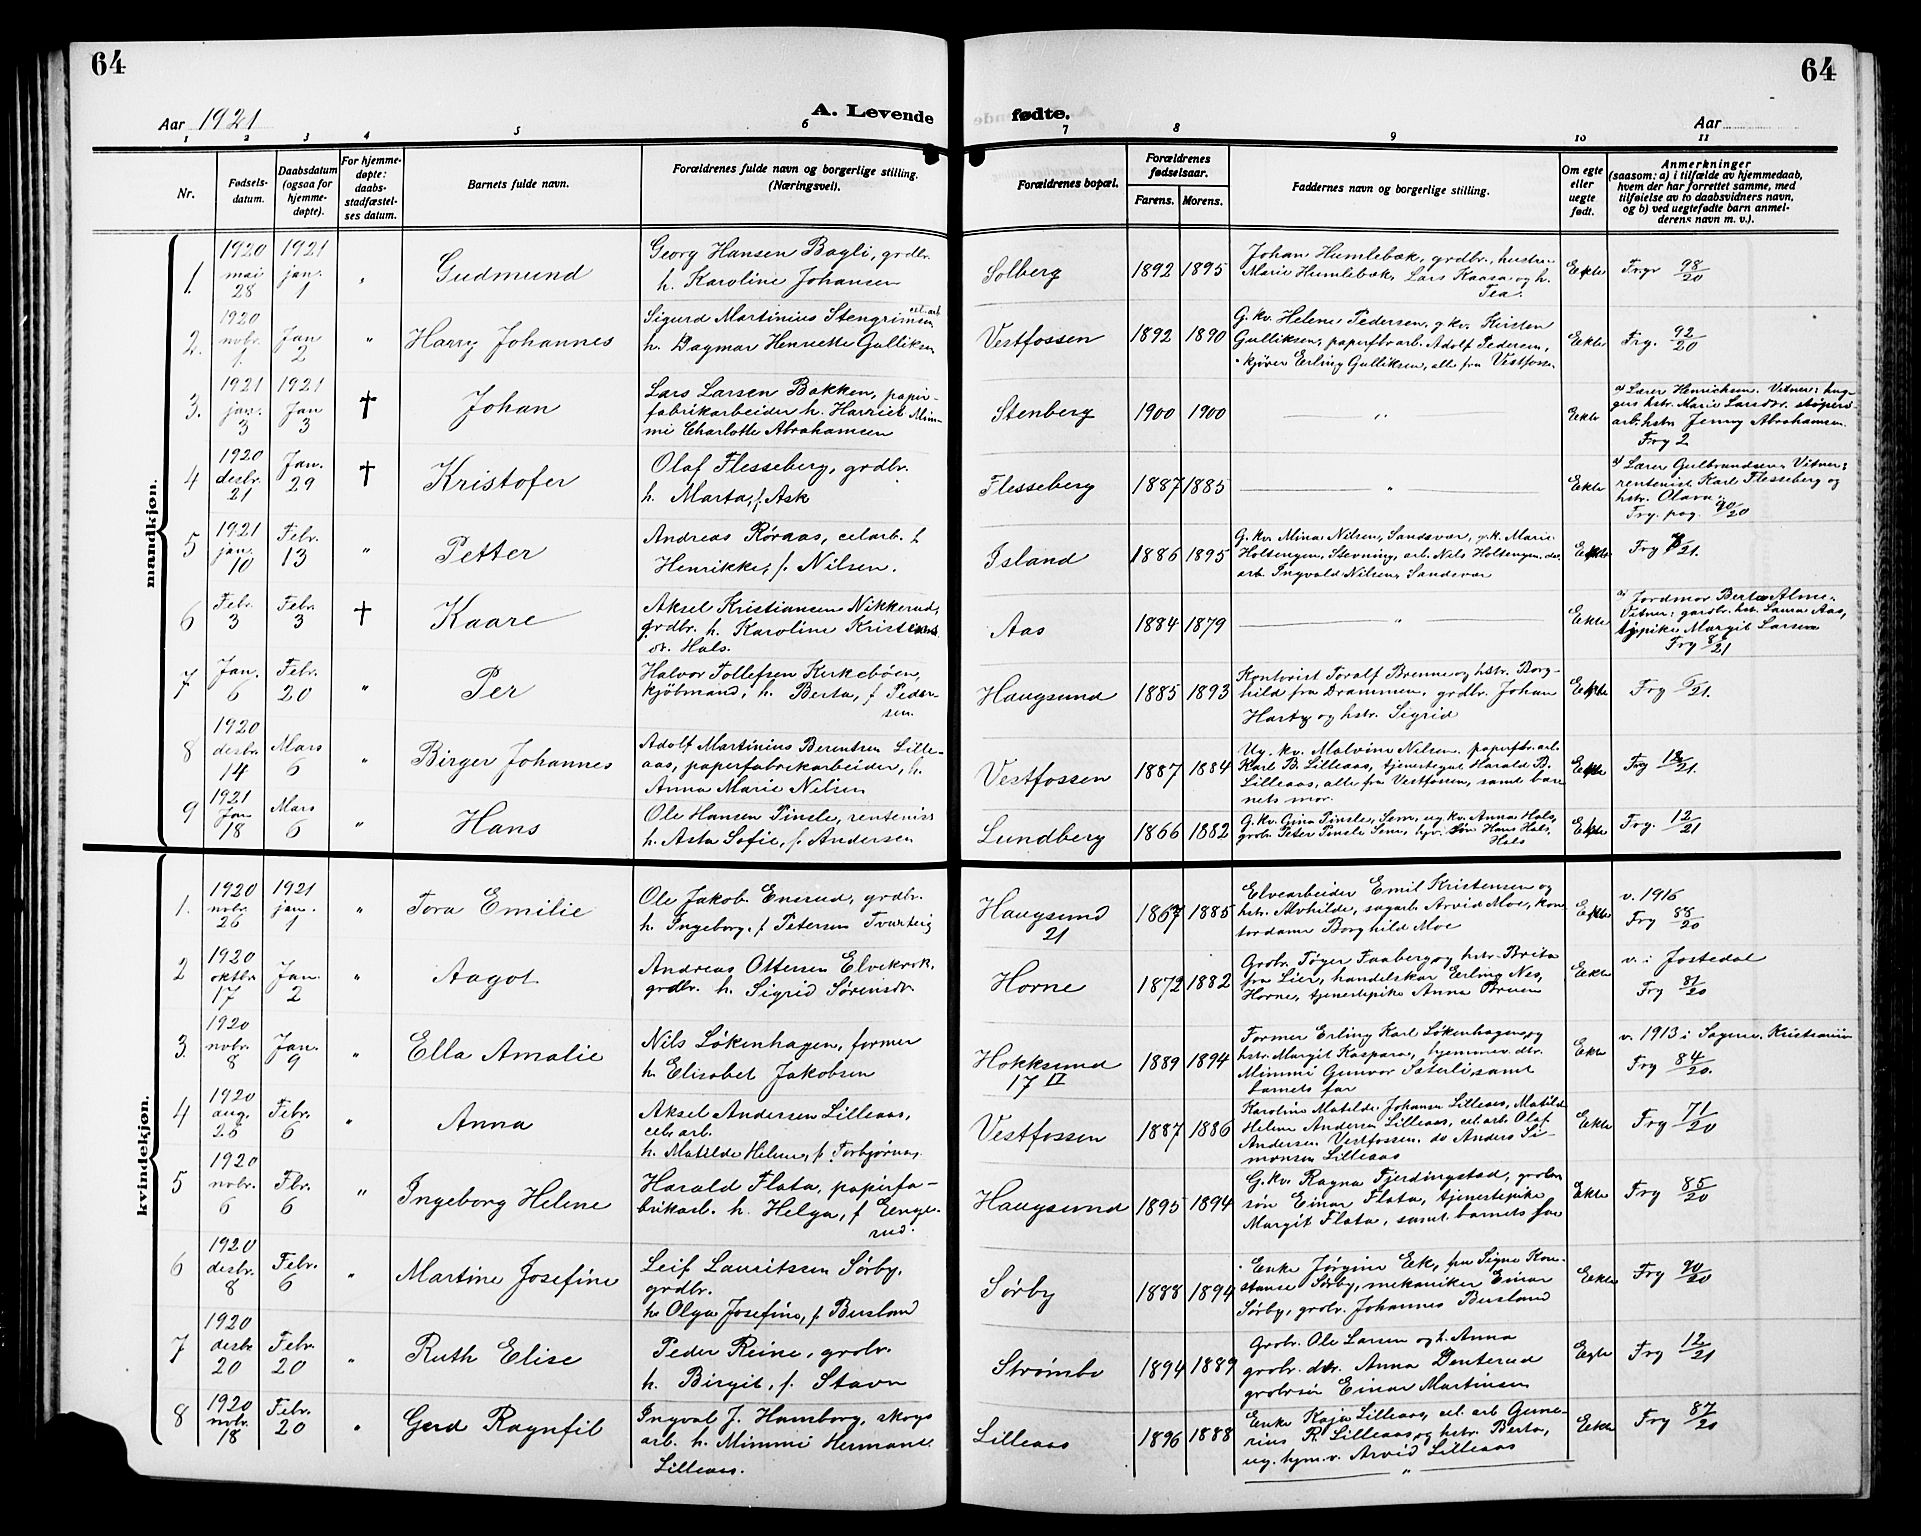 64
64
Aar 1921
A. Levende
fødte.
Aar
1 2 3 4 5 6 7 8 9 10 11
Nr.
Fødsels-
datum.
Daabsdatum
(ogsaa for
hjemme-
døpte).
For hjemme-
døpte:
daabs-
stadfæstel-
ses datum.
Barnets fulde navn.
Forældrenes fulde navn og borgerlige stilling.
(Næringsvei).
Forældrenes bopæl.
Forældrenes
fødselsaar.
Farens. Morens.
Faddernes navn og borgerlige stilling.
Om egte
eller
uegte
født.
Anmerkninger
(saasom: a) i tilfælde av hjemmedaab,
hvem der har forrettet samme, med
tilføielse av to daabsvidners navn,
og b) ved uegtefødte barn anmel-
derens navn m. v.).
mandkjøn.
1. 1920 mai 28 1921 jan. 1 Gudmund
Georg Hansen Bagli, grdbr.
h. Karoline Johansen
Solberg 1892 1895
Johan Humlebæk, grdbr., hustru
Marie Humlebæk, Lars Kaasa og h.
Tea.
Ekte Fryr 98/20
2. 1920 nobr. 1 Jan 2 " Harry Johannes
Sigurd Martinius Stengrimsen cel. arb
h. Dagmar Henriette Gulliksen
Vestfossen 1892 1890
G. kv. Helene Pedersen, g. kv. Kirsten
Gulliksen, paperfbr. arb. Adolf Pedersen,
kjører Erling Gulliksen, alle fra Vestfossen
Ekte Fry. 92/20
3. 1921 jan. 3 1921 Jan 3 † Johan
Lars Larsen Bakken, papir-
fabrikarbeider h. Harriet Mim-
mi Charlotte Abrahamsen
Stenberg 1900 1900 "
Ekte
a) Lærer Henrichsen. Vitner: hug-
gers hstr. Marie Larsdr. støperi
arb. hstr. Jenny Abrahamsen.
Fry 2
4 1920 desbr. 21 Jan. 29 † Kristofer
Olaf Flesseberg, grdbr.
h. Marta, f. Ask
Flesseberg 1887 1885 "
Ekte
a) Lærer Gulbrandsen. Vitner:
rentenist Karl Flesseberg og
hstr. Olava.
Fry. pag. 90/20
5 1921 jan. 10 Febr. 13 " Petter
Andreas Røraas, celarb. h
Henrikke, f. Nilsen.
Island 1886 1895
G. kv. Mina Nilsen, Sandsvær, g. k. Marie
Holtengen, Stevning, arb. Nils Holtengen, do.
arb. Ingvald Nilsen, Sandsvær
Ekte Fry 21.
6 Febr. 3 Febr. 3 † Kaare
Aksel Kristiansen Nikkerud,
grdbr. h. Karoline Kristians-
dr. Hals.
Aas 1884 1879 "
Ekte
a) Jordmor Berta Alme.
Vitner: gardbr. hst. Laura Aas,
tj. pike Margit Larsen
Fry 8/21
7 Jan. 6 Febr. 20 " Per
Halvor Tollefsen Kirkebøen,
kjøbmand, h. Berta, f. Peder-
sen.
Haugsund 1885 1893
Kontorist Toralf Brenne og hstr. Borg-
hild fra Drammen, grdbr. Johan
Harby og hstr. Sigrid
Ekte Fry 21.
8 1920 desbr. 14 Mars 6 " Birger Johannes
Adolf Martinius Berentsen Lille-
aas, paperfabrikarbeider, h.
Anna Marie Nilsen
Vestfossen 1887 1884
Ug. kv. Malvine Nilsen. paperfbr. arb.
Karl B. Lilleaas, tjenestegut Harald B.
Lilleaas, alle fra Vestfossen, samt bar-
nets mor.
Ekte Fry 21.
9 1921 Jan 18 Mars 6 " Hans
Ole Hansen Tinsle, rentenist
h. Asta Sofie, f. Andersen
Lundberg 1866 1882
G. kv. Gina Tinsle, Sem, ug. kv. Anna Hals,
grdbr. Peter Tinsle Sem, søn Hans Hals,
Hals
Ekte Fry. 12/21
kvindekjøn.
1. 1920 nobr. 26 1921 jan. 1 " Tora Emilie
Ole Jakob. Enerud, grdbr.
h. Ingeborg, f. Petersen Tvarteig
Haugsund
21
1867 1885
Elvearbeider Emil Kristensen og
hstr. Alvhilde, sagarb. Arvid Moe, kon-
tordame Borghild Moe
Ekte
v. 1916
Fry 88/20
2 1920 oktbr. 17 Jan. 2 " Aagot
Andreas Ottersen Elvekrok,
grdbr. h. Sigrid Sørensdr.
Horne 1872 1882
Grdbr. Tøger Faaberg og hstr. Brita
fra Lier, handelskar Erling Nes,
Horne, tjenestepike Anna Bruen
Ekte
v. i Jostedal
Fry 81/20
3. 1920 nobr. 8 Jan. 9 " Ella Amalie
Nils Løkenhagen, former
h. Elisabet Jakobsen
Hokksund
17 II
1889 1894
Former Erling Karl Løkenhagen og
hstr. Margit Kaspara, hjemmev. dtr.
Mimmi Gunvor Sæterli, samt
barnets far
Ekte
v. 1913 i Sagene, Kristiania
Fry 84/20.
4 1920 aug. 26 Febr. 6 " Anna
Aksel Andersen Lilleaas,
cel. arb.
h. Matilde Helene, f. Torbjørnsen
Vestfossen 1887 1886
Karoline Matilde Johansen Lilleaas, Matilde
Helene Andersen Lilleaas, cel. arb. Olaf
Andersen Vestfossen. do Anders Si-
monsen Lilleaas
Ekte Fry 71/20
5 1920 nobr. 6 Fbr. 6 " Ingeborg Helene
Harald Flata, papirfa-
brikarb. h. Helga, f. Enge-
rud.
Haugsund 1895 1894
G. kv. Ragna Fjerdingstad, grdbr.
søn Einar Flata, tjenestepike
Margit Flata, samt barnets far
Ekte Fry 85/20
6 1920 desbr. 8 Febr. 6 " Martine Josefine
Leif Lauritssen Sørby,
grdbr.
h. Olga Josefine, f. Bersland
Sørby 1888 1894
Enke Jørgine Eek, fru Signe Kon-
stanse Sørby, mekaniker Einar
Sørby, grdbr. Johannes Bersland
Ekte Fry 90/20
7 1920 desbr 20 Febr. 20 " Ruth Elise
Peder Reine, grdbr.
h. Birgit, f. Stavn
Strømbo 1894 1889
Grdbr. Ole Larsen og h. Anna
grdbr. dtr. Anna Denterud
grdbr. søn Einar Martinsen
Egte Fry 12/21
8 1920 nobr. 18 Febr. 20 " Gerd Ragnfil
Ingval J. Hamborg, skogs
arb. h. Mimmi Hermane
Lilleaas.
Lilleaas 1896 1888
Enke Kaja Lilleaas, cel. arb Gune-
rius R. Lilleaas og hstr. Berta,
ug. hjm. v. Arvid Lilleaas
Ekte Fry 87/20